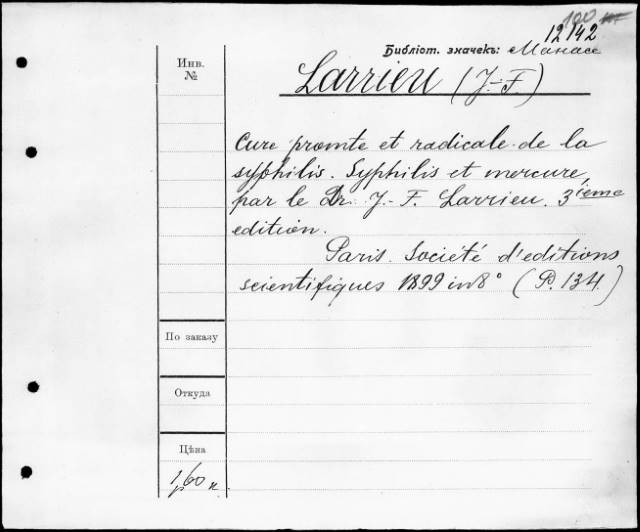 100
12142
Библіот. значекъ: Манасс
Инв.
№
Larrieu (J.-F.)
Cure promte et radicale de la
syphilis. Syphilis et mercure,
par le Dr. J.-F. Larrieu. 3ième
edition.
Paris. Société d'editions
scientifiques 1899 in 8° (P. 134.)
По заказу
Откуда
Цѣна
1 р 60 к.